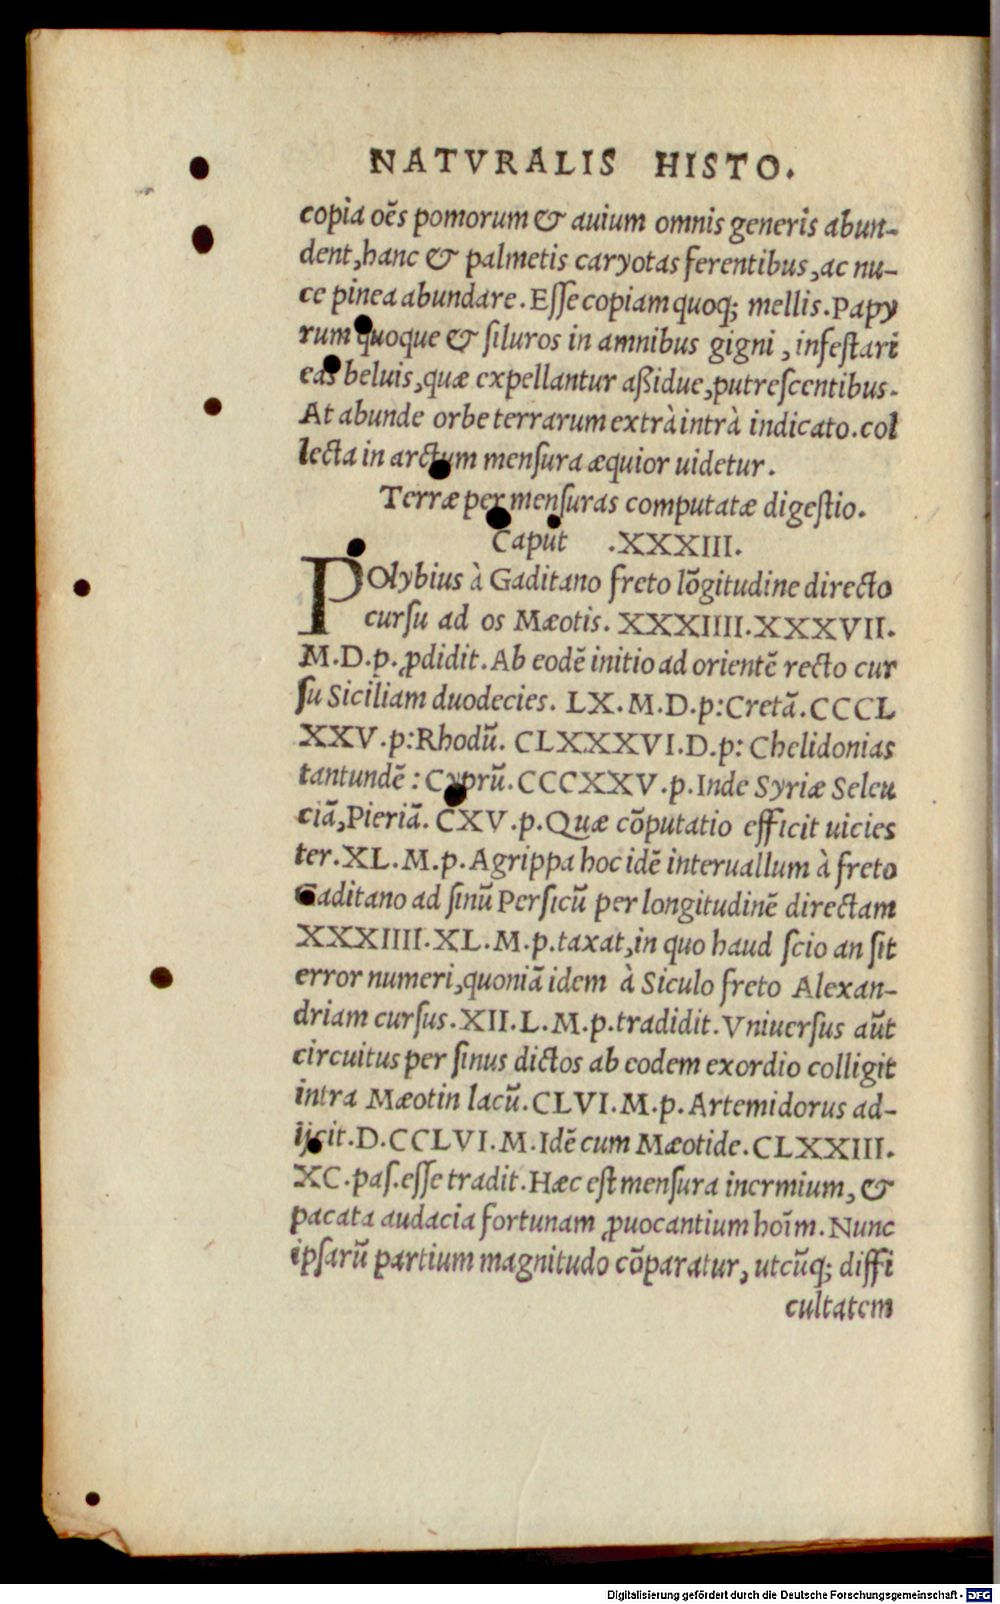 NATVRALIS HISTO.
copia oēs pomorum & auium omnis generis abun-
dent, hanc & palmetis caryotas ferentibus, ac nu-
ce pinea abundare. Eſſe copiam quoq; mellis. Papy
rum quoque & ſiluros in amnibus gigni, infeſtari
eas beluis, quæ expellantur aßidue, putreſcentibus.
At abunde orbe terrarum extrà intrà indicato. col
lecta in arctum menſura æquior uidetur.
Terræ per menſuras computatæ digeſtio.
Caput .XXXIII.
POlybius à Gaditano freto lōgitudine directo
curſu ad os Mæotis. XXXIIII.XXXVII.
M.D.p. ꝓdidit. Ab eodē initio ad orientē recto cur
ſu Siciliam duodecies. LX. M. D. p: Cretā. CCCL
XXV. p: Rhodū. CLXXXVI. D. p: Chelidonias
tantundē: Cyprū. CCCXXV. p. Inde Syriæ Seleu
ciā, Pieriā. CXV. p. Quæ cōputatio efficit uicies
ter. XL. M. p. Agrippa hoc idē interuallum à freto
Gaditano ad ſinū Perſicū per longitudinē directam
XXXIIII. XL. M. p. taxat, in quo haud ſcio an ſit
error numeri, quoniā idem à Siculo freto Alexan-
driam curſus. XII. L. M. p. tradidit. Vniuerſus aūt
circuitus per ſinus dictos ab eodem exordio colligit
intra Mæotin lacū. CLVI. M. p. Artemidorus ad-
ijcit. D. CCLVI. M. Idē cum Mæotide. CLXXIII.
XC. paſ. eſſe tradit. Hæc eſt menſura inermium, &
pacata audacia fortunam ꝓuocantium hoīm. Nunc
ipſarū partium magnitudo cōparatur, utcūq; diffi
cultatem
Digitalisierung gefördert durch die Deutsche Forschungsgemeinschaft - DFG